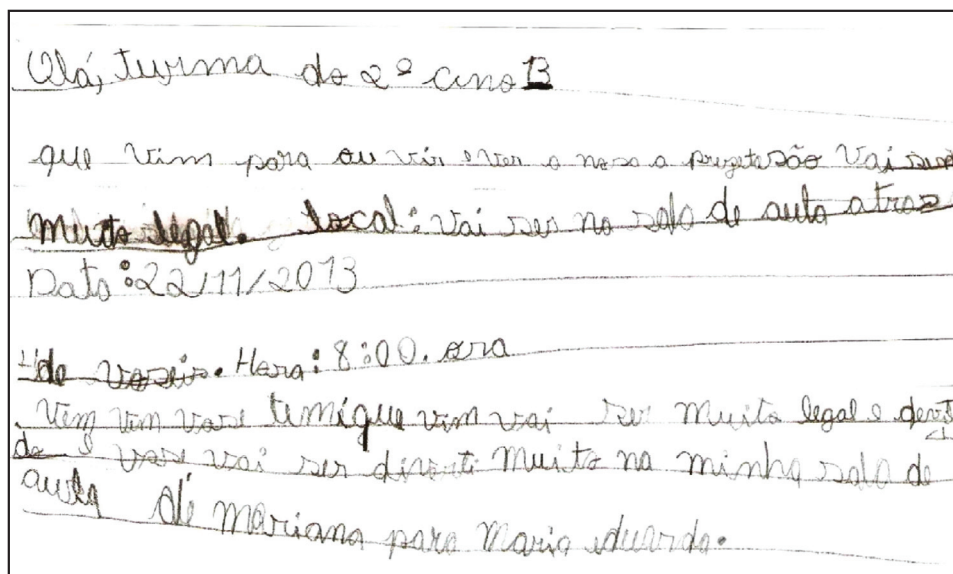 Olá, turma do 2º ano B
que vim para ou vir e ver a nosa a prezetasão Vai ser
muito legal. local: Vai ser na sala de aula atraz
Data: 22/11/2013
de vozeis. Hora: 8:00. ora
Vem vim vose temique vim vai ser muito legal e deverti
do e vose vai ser diverti muito na minha sala de
aula dé mariana para Maria eduarda.